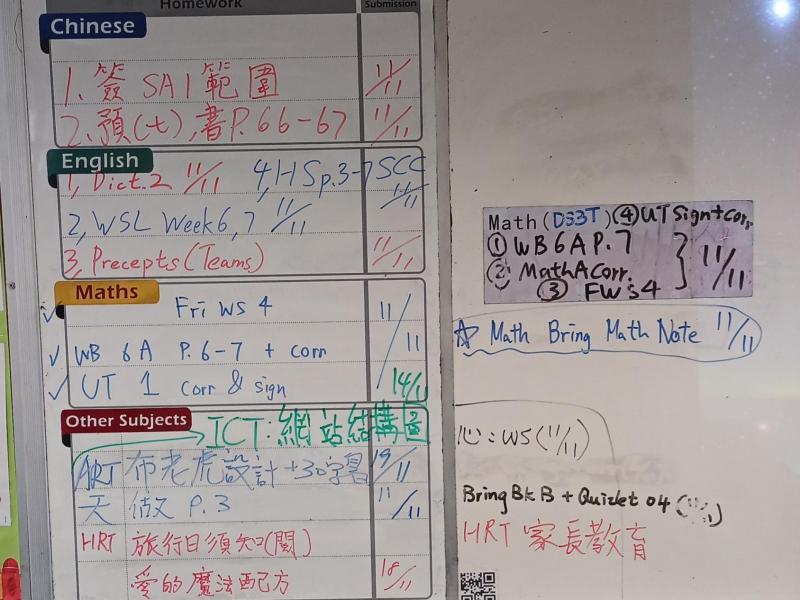 Homework Submission
Chinese
1. 簽 SA1 範圍 11/11
2. 預(七),書P.66-67 11/11
English
1, Dict.2 11/11 4, HS p.3-7 SCC 11/11
2, WSL Week 6,7 11/11
3, Precepts (Teams) 11/11
Maths
Fri WS 4 11/11
WB 6A P.6-7 + corr
UT 1 corr & sign 14/11
Other Subjects
ICT: 網站結構圖
ART 布老虎設計+30字 19/11
天 做 P.3 11/11
HRT 旅行日須知(閱)
愛的魔法配方 18/11
Math (DS3T) ④UT Sign+Corr.
① WB 6A P.7
② Math A Corr. 11/11
③ FWS4
☆ Math Bring Math Note 11/11
心: WS (11/11)
Bring Bk B + Quizlet 04 (11/11)
HRT 家長教育